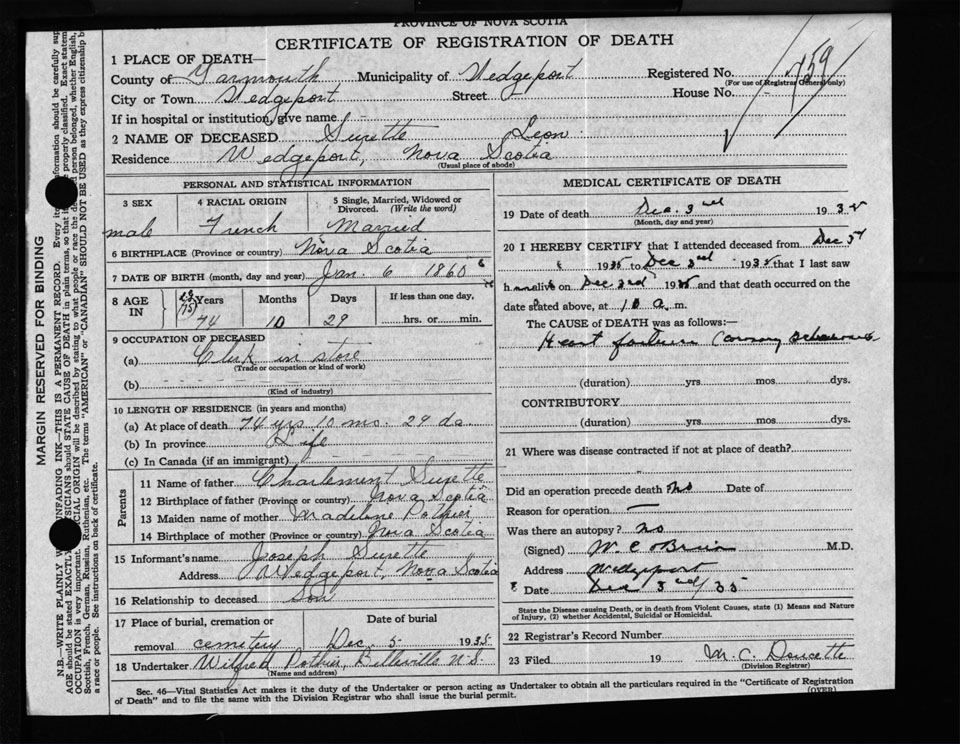 PROVINCE OF NOVA SCOTIA
CERTIFICATE OF REGISTRATION OF DEATH
1 PLACE OF DEATH—
County of Yarmouth Municipality of Wedgeport Registered No.
(For use of Registrar General only)
City or Town Wedgeport Street House No.
If in hospital or institution, give name
2 NAME OF DECEASED Surette Leon
Residence Wedgeport, Nova Scotia
(Usual place of abode)
PERSONAL AND STATISTICAL INFORMATION
3 SEX 4 RACIAL ORIGIN 5 Single, Married, Widowed or Divorced. (Write the word)
male French Married
6 BIRTHPLACE (Province or country) Nova Scotia
7 DATE OF BIRTH (month, day and year) Jan. 6 1860
8 AGE IN Years Months Days If less than one day,
74 10 29 hrs. or min.
9 OCCUPATION OF DECEASED
(a) Clerk in store
(Trade or occupation or kind of work)
(b)
(Kind of industry)
10 LENGTH OF RESIDENCE (in years and months)
(a) At place of death 74 yrs 10 mo. 29 da.
(b) In province Life
(c) In Canada (if an immigrant)
Parents
11 Name of father Charlemont Surette
12 Birthplace of father (Province or country) Nova Scotia
13 Maiden name of mother Madeline Pothier
14 Birthplace of mother (Province or country) Nova Scotia
15 Informant's name Joseph Surette
Address Wedgeport, Nova Scotia
16 Relationship to deceased Son
17 Place of burial, cremation or removal Date of burial
cemetery Dec. 5 1935
18 Undertaker Wilfred Pothier, Belleville N.S.
(Name and address)
MEDICAL CERTIFICATE OF DEATH
19 Date of death Dec. 3rd 193
(Month, day and year)
20 I HEREBY CERTIFY that I attended deceased from Dec
1935 to Dec 3rd 1935 that I last saw
h alive on Dec 3rd 1935 and that death occurred on the
date stated above, at 10 a. m.
The CAUSE of DEATH was as follows:—
Heart
(duration) yrs mos dys.
CONTRIBUTORY
(duration) yrs mos dys.
21 Where was disease contracted if not at place of death?
Did an operation precede death no Date of
Reason for operation —
Was there an autopsy? no
(Signed) W. C. O'Brien M.D.
Address Wedgeport
Date Dec 3rd/35
State the Disease causing Death, or in death from Violent Causes, state (1) Means and Nature
of Injury, (2) whether Accidental, Suicidal or Homicidal.
22 Registrar's Record Number
23 Filed 19 M. C. Doucette
(Division Registrar)
Sec. 46—Vital Statistics Act makes it the duty of the Undertaker or person acting as Undertaker to obtain all the particulars required in the "Certificate of Registration
of Death" and to file the same with the Division Registrar who shall issue the burial permit.
(OVER)
MARGIN RESERVED FOR BINDING